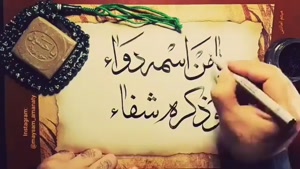 مَن اسمه دواء
وذكره شفاء
Instagram:
@maysam_amanani